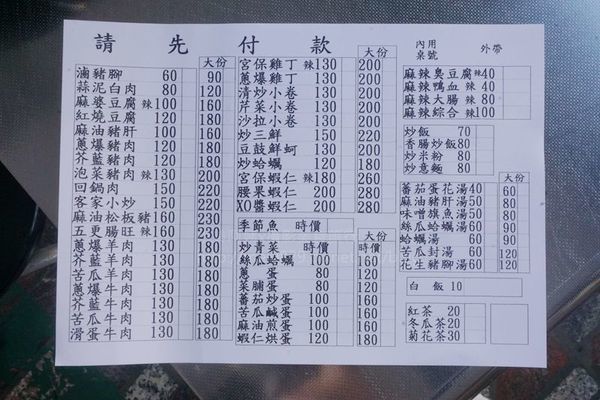 請先付款
內用 桌號 外帶
大份
滷豬腳 60 90
蒜泥白肉 80 120
麻婆豆腐 辣 100 160
紅燒豆腐 120 180
麻油豬肝 100 160
蔥爆豬肉 120 180
芥藍豬肉 120 180
泡菜豬肉 辣 130 200
回鍋肉 150 220
客家小炒 150 220
麻油松板豬 160 230
五更腸旺 辣 160 230
蔥爆羊肉 130 180
芥藍羊肉 130 180
苦瓜羊肉 130 180
蔥爆牛肉 130 180
芥藍牛肉 130 180
苦瓜牛肉 130 180
滑蛋牛肉 130 180
大份
宮保雞丁 辣 130 200
蔥爆雞丁 130 200
清炒小卷 130 200
芹菜小卷 130 200
沙拉小卷 130 200
炒三鮮 150 220
豆鼓鮮蚵 130 200
炒蛤蠣 120 180
宮保蝦仁 辣 180 260
腰果蝦仁 200 280
XO醬蝦仁 200 280
季節魚 時價
大份
炒青菜 時價 時價
絲瓜蛤蠣 100 160
蔥蛋 80 120
菜脯蛋 80 120
蕃茄炒蛋 100 160
苦瓜鹹蛋 100 160
麻油煎蛋 100 160
蝦仁烘蛋 120 180
麻辣臭豆腐 辣 40
麻辣鴨血 辣 40
麻辣大腸 辣 80
麻辣綜合 辣 100
炒飯 70
香腸炒飯 80
炒米粉 80
炒意麵 80
大份
蕃茄蛋花湯 40 60
麻油豬肝湯 50 80
味噌旗魚湯 50 80
絲瓜蛤蠣湯 60 90
蛤蠣湯 60 90
苦瓜封湯 60 120
花生豬腳湯 60 120
白飯 10
紅茶 20
冬瓜茶 20
菊花茶 30